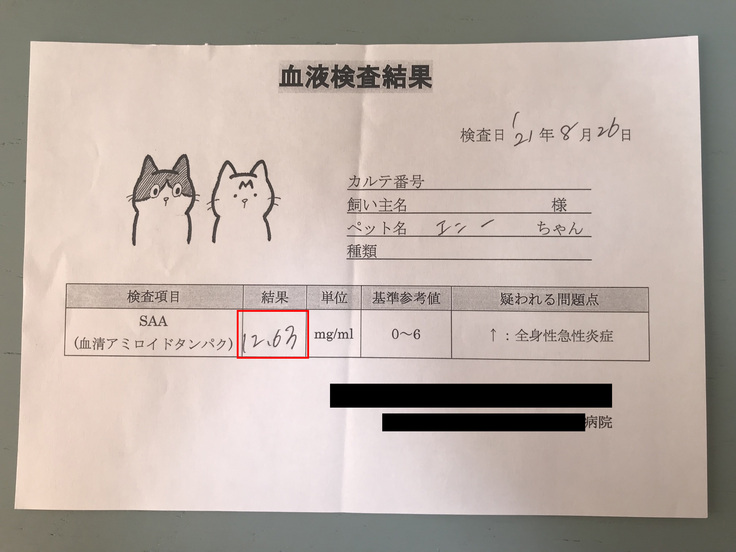 血液検査結果
検査日 '21年8月26日
カルテ番号
飼い主名 様
ペット名 エンー ちゃん
種類
検査項目 結果 単位 基準参考値 疑われる問題点
SAA
(血清アミロイドタンパク) 12.63 mg/ml 0～6 ↑：全身性急性炎症
病院